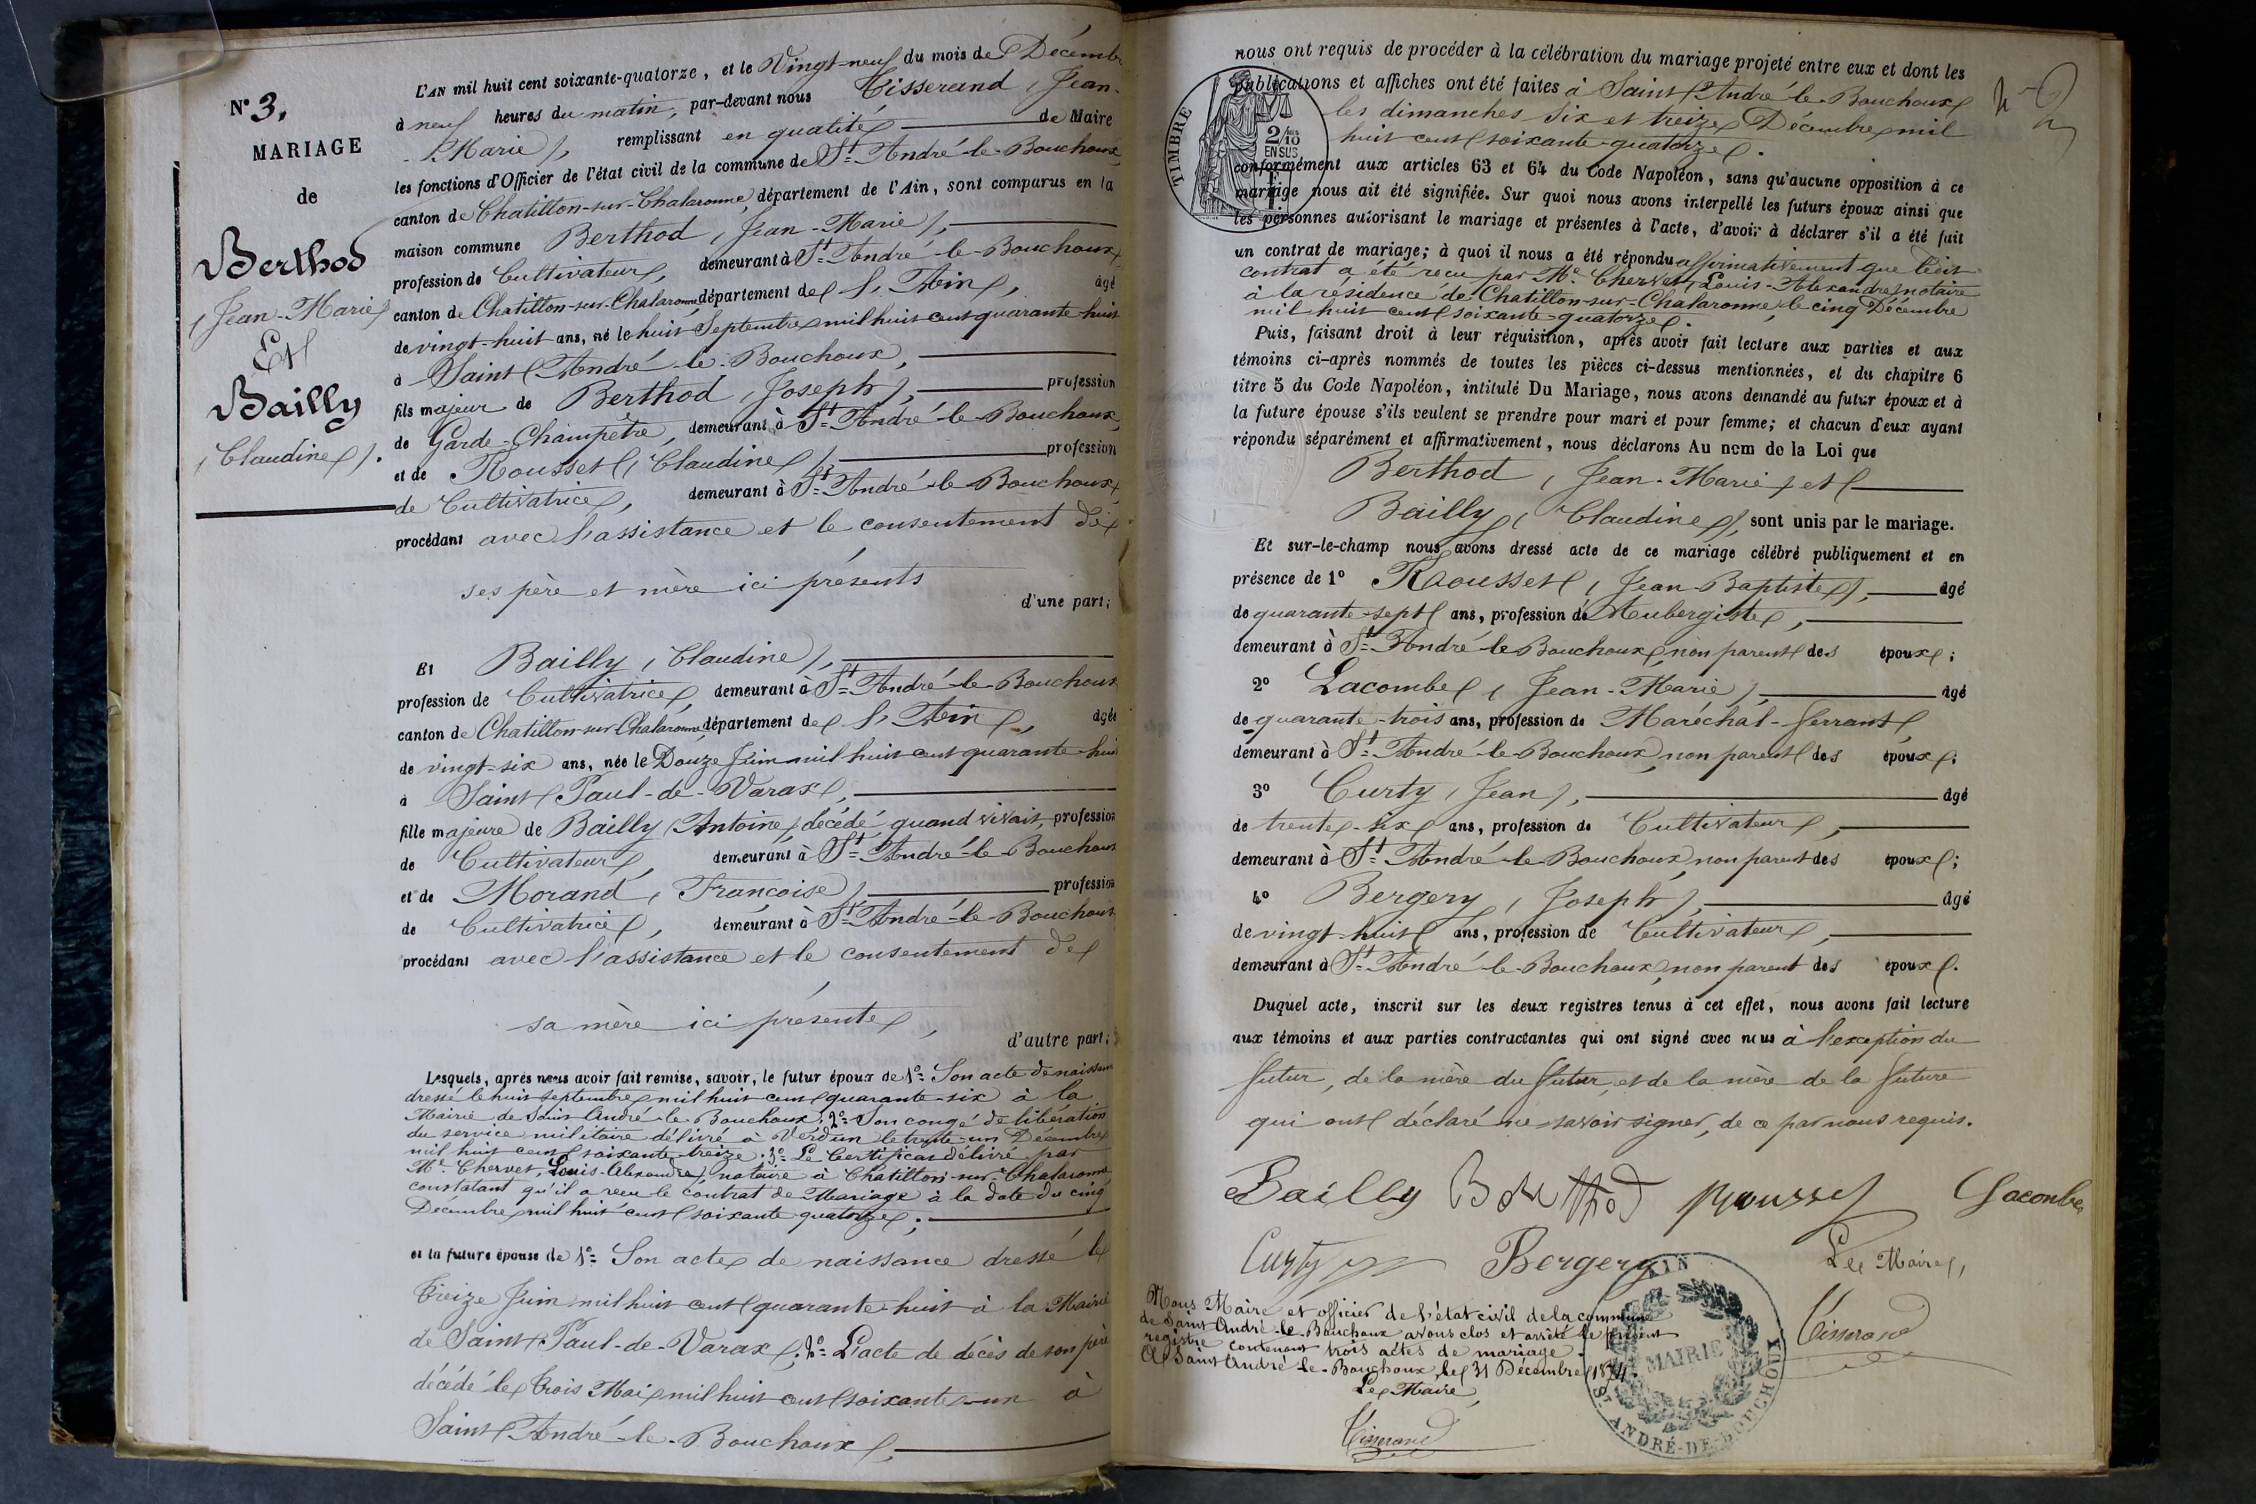 N° 3.
MARIAGE
de
Berthod
(Jean-Marie)
Et
Bailly
(Claudine).
L'AN mil huit cent soixante-quatorze, et le Vingt-neuf du mois de Décembre
à neuf heures du matin, par-devant nous Tisserand (Jean-
-Marie), remplissant en qualité de Maire
les fonctions d'Officier de l'état civil de la commune de St André-le-Bouchoux
canton de Chatillon-sur-Chalaronne, département de l'Ain, sont comparus en la
maison commune Berthod (Jean-Marie),
profession de Cultivateur, demeurant à St André-le-Bouchoux,
canton de Chatillon-sur-Chalaronne département de l'Ain, âgé
de vingt-huit ans, né le huit Septembre mil huit cent quarante-huit
à Saint André-le-Bouchoux,
fils majeur de Berthod (Joseph), profession
de Garde-Champêtre, demeurant à St André-le-Bouchoux,
et de Rousset (Claudine), profession
de Cultivatrice, demeurant à St André-le-Bouchoux,
procédant avec l'assistance et le consentement de
ses père et mère ici présents
d'une part;
Et Bailly (Claudine),
profession de Cultivatrice, demeurant à St André-le-Bouchoux
canton de Chatillon-sur-Chalaronne département de l'Ain, âgée
de vingt-six ans, née le Douze Juin mil huit cent quarante-huit
à Saint Paul-de-Varax,
fille majeure de Bailly (Antoine) décédé quand vivait, profession
de Cultivateur, demeurant à St André-le-Bouchoux
et de Morand (Françoise), profession
de Cultivatrice, demeurant à St André-le-Bouchoux
procédant avec l'assistance et le consentement de
sa mère ici présente,
d'autre part;
Lesquels, après nous avoir fait remise, savoir, le futur époux de 1°= Son acte de naissance
dressé le huit septembre mil huit cent quarante-six à la
Mairie de Saint André-le-Bouchoux; 2°= Son congé de libération
du service militaire délivré à Verdun le trente-un Décembre
mil huit cent soixante-treize; 3°= Le Certificat délivré par
Me Chervet, Louis-Alexandre, notaire à Chatillon-sur-Chalaronne,
constatant qu'il a reçu le contrat de Mariage à la date du cinq
Décembre mil huit cent soixante quatorze;
et la future épouse de 1°= Son acte de naissance dressé le
treize Juin mil huit cent quarante-huit à la Mairie
de Saint Paul-de-Varax; 2°= L'acte de décès de son père
décédé le trois Mai mil huit cent soixante-un à
Saint André-le-Bouchoux,
nous ont requis de procéder à la célébration du mariage projeté entre eux et dont les
publications et affiches ont été faites à Saint André-le-Bouchoux
les dimanches six et treize Décembre mil
huit cent soixante-quatorze.
TIMBRE
2/10
EN SUS
conformément aux articles 63 et 64 du Code Napoléon, sans qu'aucune opposition à ce
mariage nous ait été signifiée. Sur quoi nous avons interpellé les futurs époux ainsi que
les personnes autorisant le mariage et présentes à l'acte, d'avoir à déclarer s'il a été fait
un contrat de mariage; à quoi il nous a été répondu affirmativement que leur
contrat a été reçu par Me Chervet, Louis-Alexandre, notaire
à la résidence de Chatillon-sur-Chalaronne, le cinq Décembre
mil huit cent soixante-quatorze.
Puis, faisant droit à leur réquisition, après avoir fait lecture aux parties et aux
témoins ci-après nommés de toutes les pièces ci-dessus mentionnées, et du chapitre 6
titre 5 du Code Napoléon, intitulé Du Mariage, nous avons demandé au futur époux et à
la future épouse s'ils veulent se prendre pour mari et pour femme; et chacun d'eux ayant
répondu séparément et affirmativement, nous déclarons Au nom de la Loi que
Berthod (Jean-Marie) et
Bailly (Claudine), sont unis par le mariage.
Et sur-le-champ nous avons dressé acte de ce mariage célébré publiquement et en
présence de 1° Rousset (Jean-Baptiste), âgé
de quarante-sept ans, profession de Aubergiste,
demeurant à St André-le-Bouchoux, non parent des époux;
2° Lacombe (Jean-Marie), âgé
de quarante-trois ans, profession de Maréchal-ferrant,
demeurant à St André-le-Bouchoux, non parent des époux;
3° Curty (Jean), âgé
de trente-six ans, profession de Cultivateur,
demeurant à St André-le-Bouchoux, non parent des époux;
4° Bergery (Joseph), âgé
de vingt-huit ans, profession de Cultivateur,
demeurant à St André-le-Bouchoux, non parent des époux.
Duquel acte, inscrit sur les deux registres tenus à cet effet, nous avons fait lecture
aux témoins et aux parties contractantes qui ont signé avec nous à l'exception du
futur, de la mère du futur, et de la mère de la future
qui ont déclaré ne savoir signer, de ce par nous requis.
Bailly Berthod Rousset Lacombe
Curty Bergery Le Maire,
Tisserand
Nous Maire et officier de l'état civil de la commune
de Saint André-le-Bouchoux avons clos et arrêté le présent
registre contenant trois actes de mariage.
A Saint André-le-Bouchoux, le 31 Décembre 1874.
Le Maire,
Tisserand
AIN
MAIRIE
ST ANDRÉ-DE-BOUCHOUX